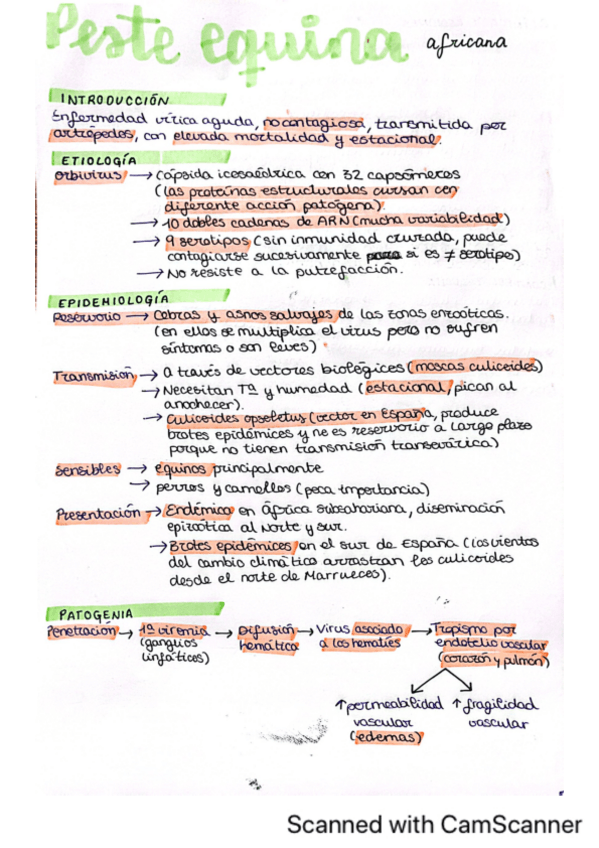 Peste equina africana
INTRODUCCIÓN
Enfermedad vírica aguda, no contagiosa, transmitida por
artrópodos, con elevada mortalidad y estacional.
ETIOLOGÍA
Orbivirus → Cápsida icosaédrica con 32 capsómeros
(las proteínas estructurales cursan con
diferente acción patógena).
→ 10 dobles cadenas de ARN (mucha variabilidad)
→ 9 serotipos (sin inmunidad cruzada, puede
contagiarse sucesivamente si es ≠ serotipo)
→ No resiste a la putrefacción.
EPIDEMIOLOGÍA
Reservorio → Cebras y asnos salvajes de las zonas enzoóticas.
(en ellos se multiplica el virus pero no sufren
síntomas o son leves)
Transmisión → a través de vectores biológicos (moscas culicoides)
→ Necesitan Tª y humedad (estacional, pican al
anochecer).
→ Culicoides opseletus (vector en España, produce
brotes epidémicos y no es reservorio a largo plazo
porque no tienen transmisión transovárica)
Sensibles → equinos principalmente
→ perros y camellos (poca importancia)
Presentación → Endémico en África subsahariana, diseminación
epizoótica al Norte y sur.
→ Brotes epidémicos en el sur de España (los vientos
del cambio climático arrastran los culicoides
desde el norte de Marruecos).
PATOGENIA
Penetración → 1ª viremia → Difusión → Virus asociado → Tropismo por
(ganglios hemática a los hematíes endotelio vascular
linfáticos) (corazón y pulmón)
↑permeabilidad ↑fragilidad
vascular vascular
(edemas)
Scanned with CamScanner